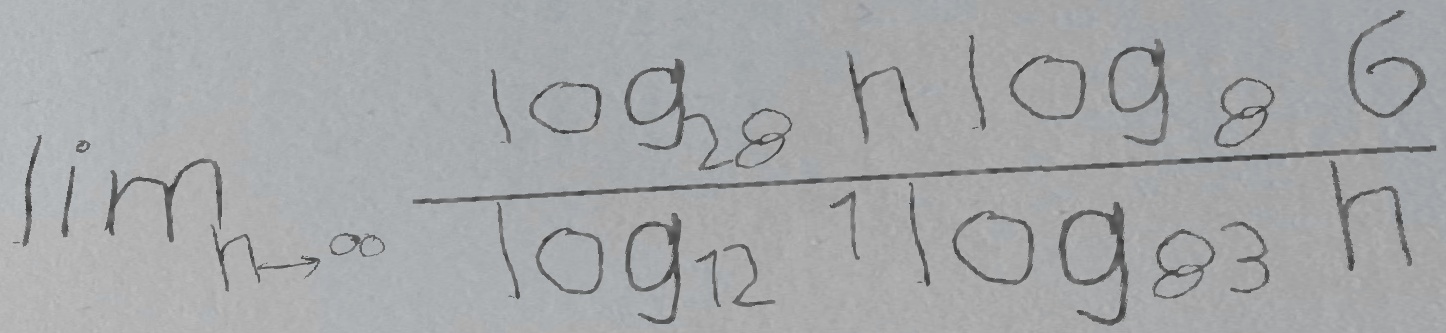 lim_{n→∞} \frac{log_{28} n log_8 6}{log_{12} 1 log_{83} n}